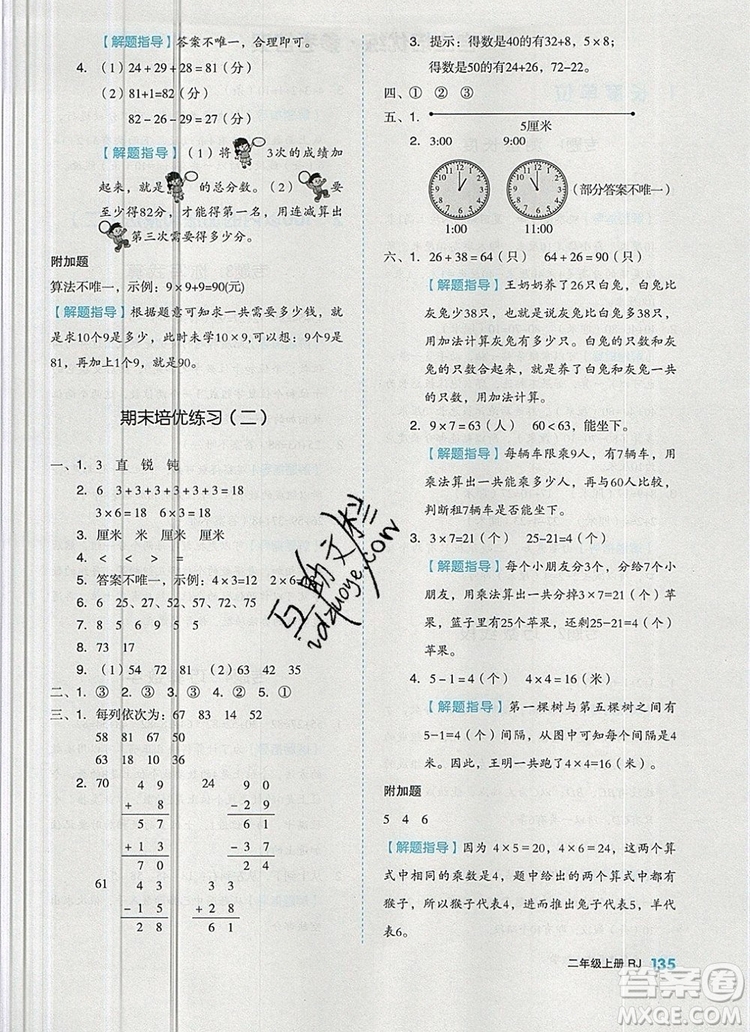 【解题指导】答案不唯一，合理即可。
4. （1）24+29+28=81（分）
（2）81+1=82（分）
82-26-29=27（分）
【解题指导】（1）将 3次的成绩加
起来，就是 的总分数。（2） 要
至少得82分，才能得第一名，用连减算出
第三次需要得多少分。
附加题
算法不唯一，示例：9×9+9=90(元)
【解题指导】根据题意可知求一共需要多少钱，就
是求10个9是多少，此时未学10×9，可以想：9个9是
81，再加上1个9，就是90。
期末培优练习（二）
一、1. 3 直 锐 钝
2. 6 3+3+3+3+3+3=18
3×6=18 6×3=18
3. 厘米 米 厘米 厘米
4. < < > =
5. 答案不唯一，示例：4×3=12 2×6=
6. 6 25、27、57、52、72、75
7. 8 8 5 6 9 5 5
8. 73 17
9. （1）54 72 81 （2）63 42 35
二、1. ③ 2. ③ 3. ② 4. ② 5. ①
三、1. 每列依次为：67 83 14 52
58 81 67 50
63 18 10 36
2. 70 4 9 24 9 0
+ 8 - 2 9
5 7 6 1
+ 1 3 - 3 7
7 0 2 4
61 4 3 3 4
- 1 5 + 2 8
2 8 6 1
3. 提示：得数是40的有32+8，5×8；
得数是50的有24+26，72-22。
四、① ② ③
五、1.
5厘米
2. 3:00 9:00
（部分答案不唯一）
1:00 11:00
六、1. 26+38=64（只） 64+26=90（只）
【解题指导】王奶奶养了26只白兔，
比灰兔少38只，也就是灰兔比白兔多
38只，用加法计算灰兔有多少只。白
兔和灰兔合起来，就是白兔和灰兔一共
的只数，用加法计算。
2. 9×7=63（人） 60<63，能坐下。
【解题指导】每辆车限乘9人，有7辆车，用
乘法算出一共能乘多少人，再与60比较，
判断租7辆车是否能坐下。
3. 3×7=21（个） 25-21=4（个）
【解题指导】每个小朋友分3个，分给7个
小朋友，求出一共分走3×7=21（个）苹
果，篮子里有25个苹果，还剩25-21=4（个）
苹果。
4. 5-1=4（个） 4×4=16（米）
【解题指导】第一棵树与第五棵树之间有
5-1=4（个）间隔，从图中可知每个间隔
是4米，因此，王明一共跑了4×4=16（米）。
附加题
5 4 6
【解题指导】因为4×5=20，4×6=24，这两个算
式中相同的乘数是4，题中给出的两个算式都有
猴子，所以猴子代表4，进而推出兔子代表5，羊代
表6。
互助文栏
idzuoye.com
二年级上册 RJ 135
答案圈
MXQE.COM